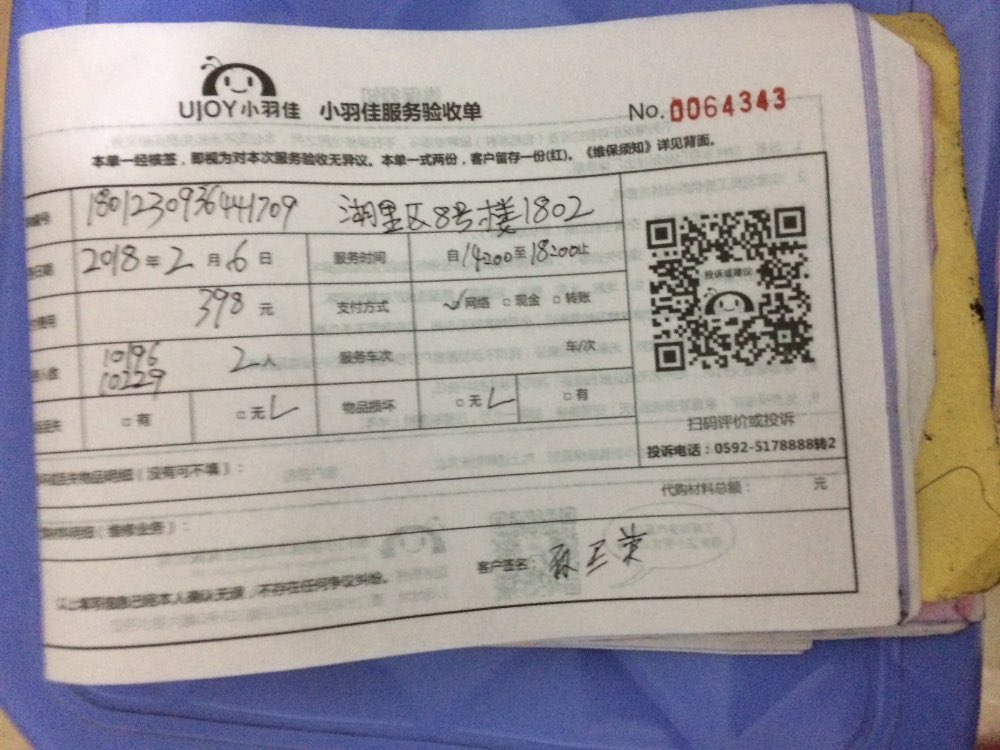 UJOY小羽佳 小羽佳服务验收单 No.0064343
本单一经核签，即视为对本次服务验收无异议。本单一式两份，客户留存一份(红)。《维保须知》详见背面。
编号 1801230936441709 湖里区8号楼1802
日期 2018年2月6日 服务时间 自14:00至18:00止
费用 398元 支付方式 网络 □现金 □转账
人数 10196 10229 2人 服务车次 车/次
□有 □无 物品损坏 □无 □有
投诉或建议
扫码评价或投诉
投诉电话：0592-5178888转2
物品明细（没有可不填）：
代购材料总额： 元
明细（维修业务）：
客户签名：
以上单项信息已经本人确认无误，不存在任何争议纠纷。